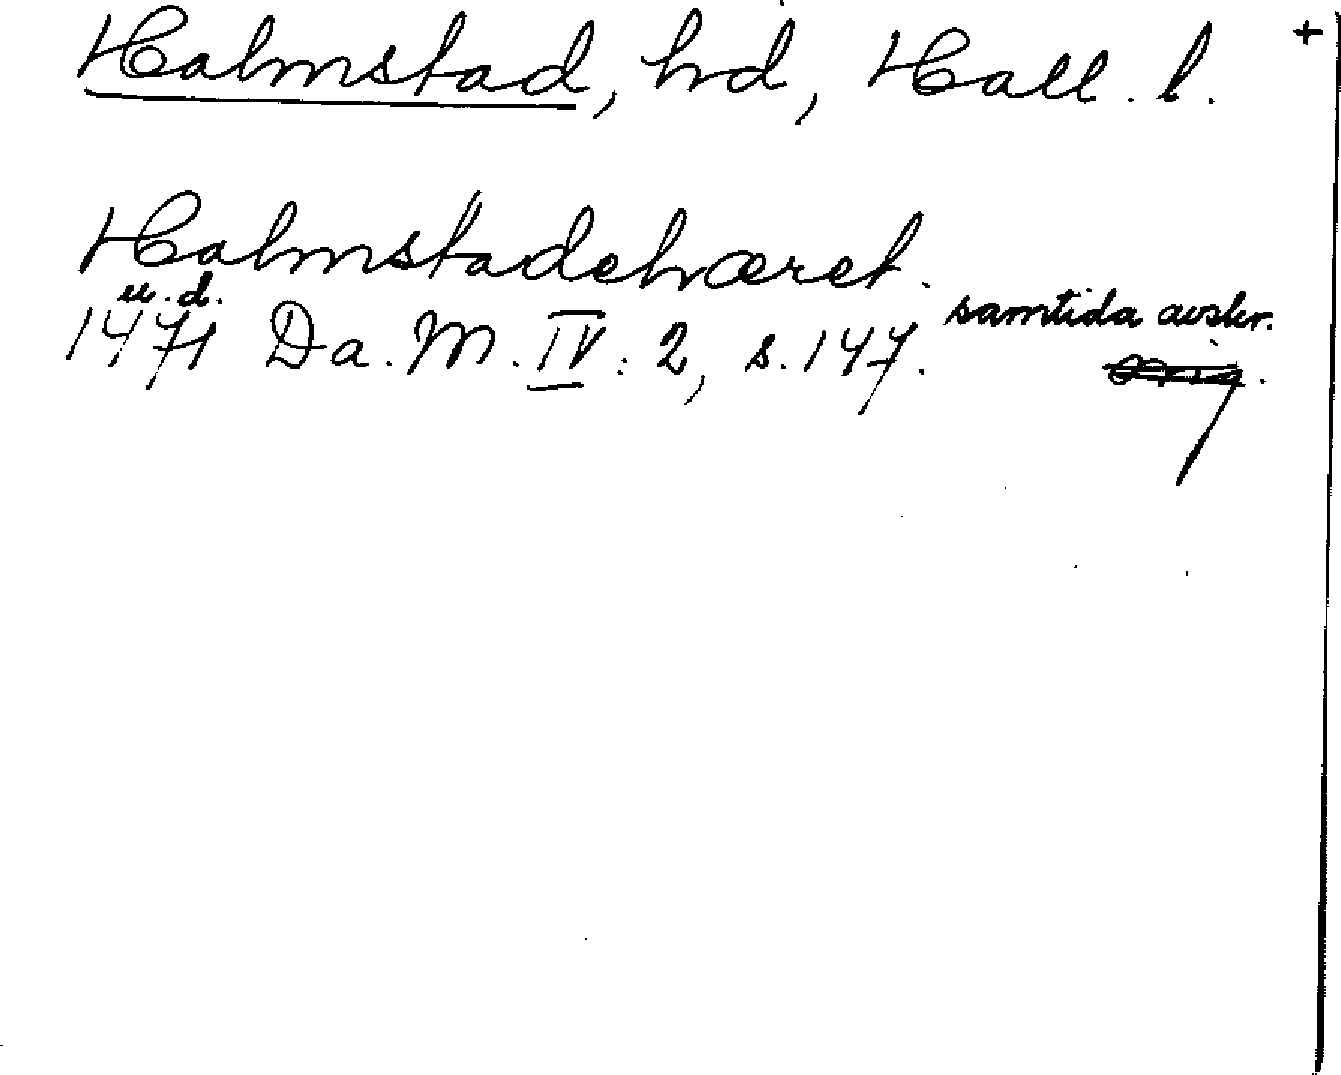 Halmstad, hd, Hall. l. +
Halmstadehæret.
u. d.
1471 Da. M. IV: 2, s. 147. samtida avskr.
Orig.